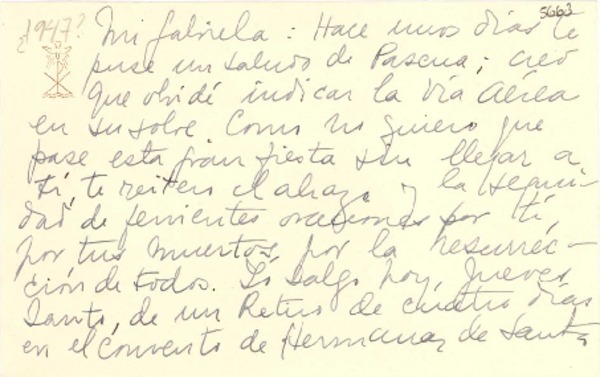 5663
¿1947?
Mi Gabriela: Hace unos días te
puse un saludo de Pascua; creo
que olvidé indicar la vía aérea
en su sobre. Como no quiero que
pase esta gran fiesta sin llegar a
ti, te reitero el abrazo y la seguri-
dad de fervientes oraciones por ti,
por tus muertos, por la resurrec-
ción de todos. Yo salgo hoy, Jueves
Santo, de un Retiro de cuatro días
en el convento de Hermanas de Santa